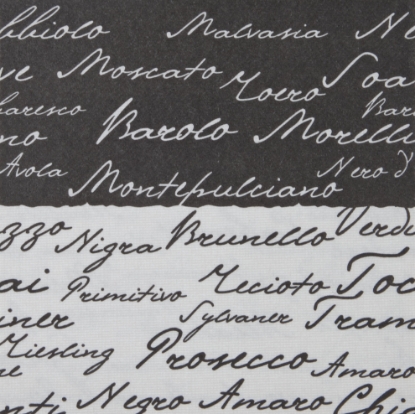 bbiolo Malvasia Ne
ve Moscato Soa
baresco Roero Barb
no Barolo Morelli
Avola Nero d'
Montepulciano
zzo Nigra Brunello Verdi
ai Primitivo Recioto Toc
iner Sylvaner Tram
Riesling Prosecco Amaro
ne
nti Negro Amaro Chi